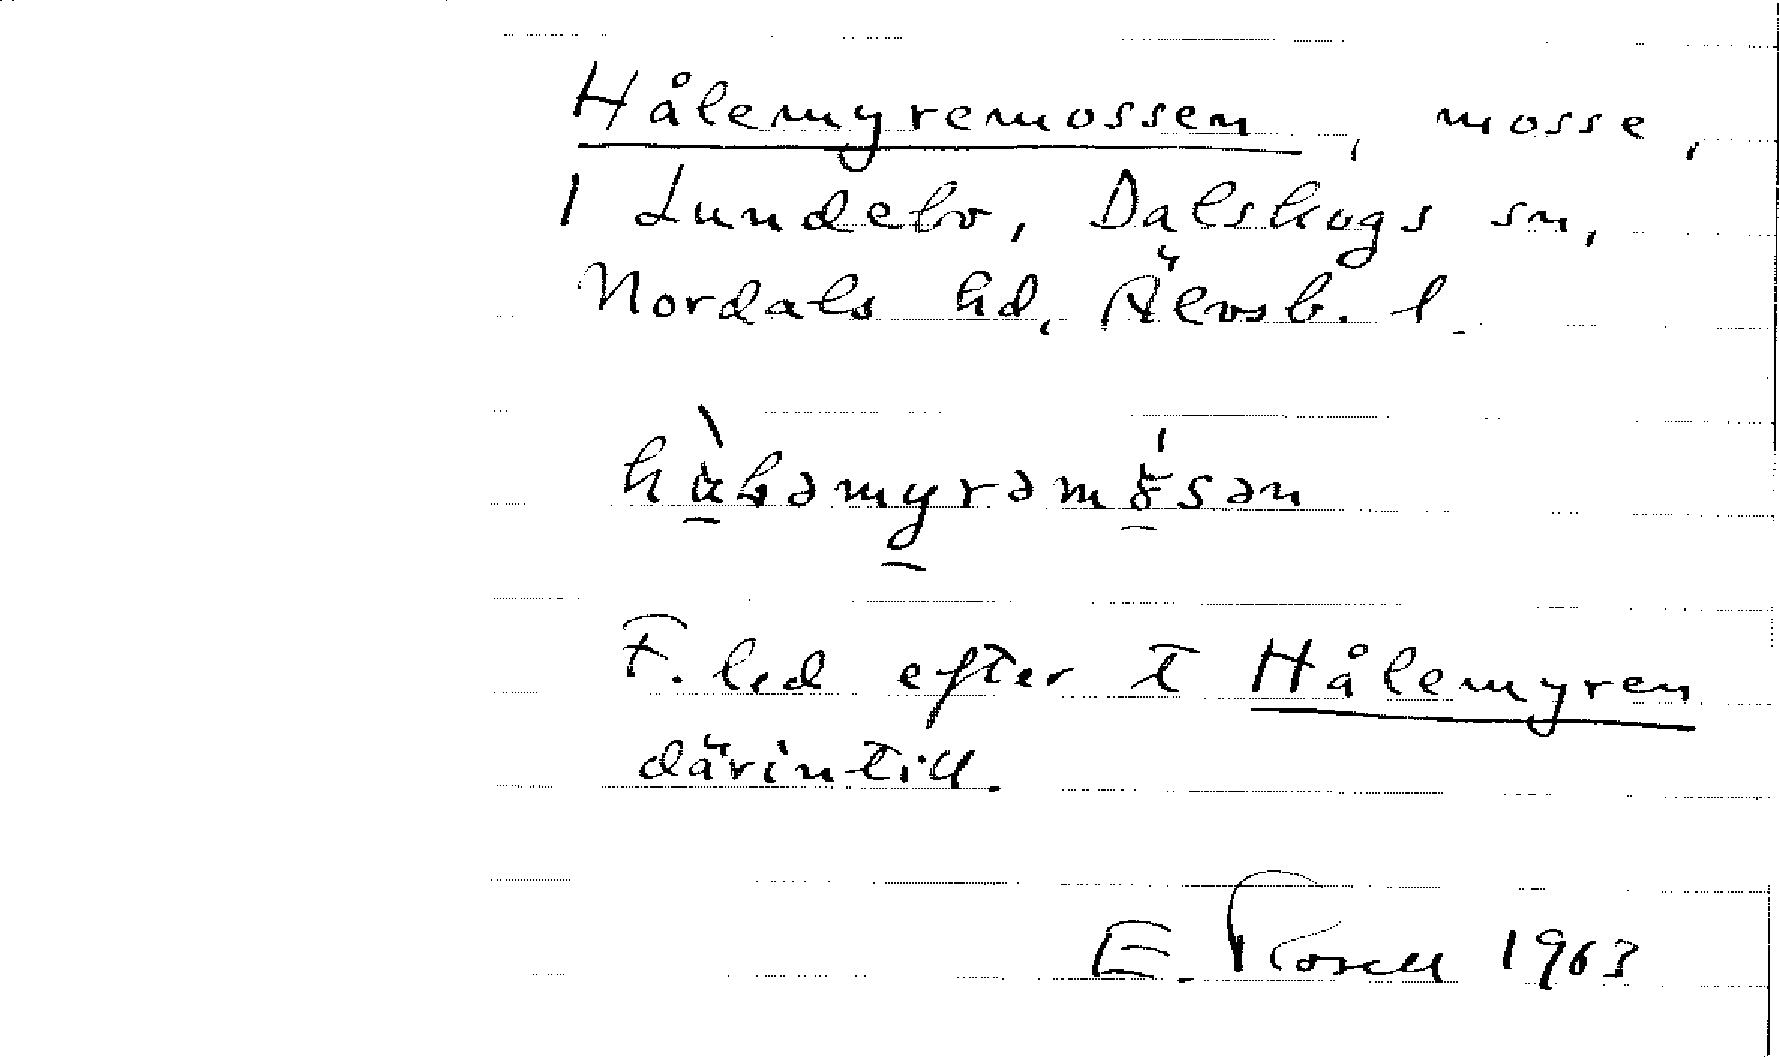 Hålemyremossen, mosse,
I Lundebo, Dalskogs sn,
Nordals hd, Älvsb. l.
F. led efter t Hålemyren
därintill.
E. Rosell 1963